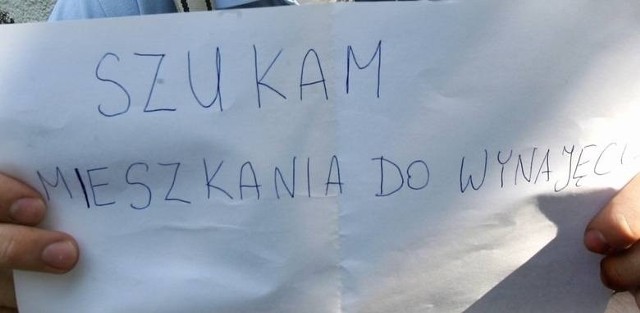 SZUKAM
MIESZKANIA DO WYNAJĘCIA